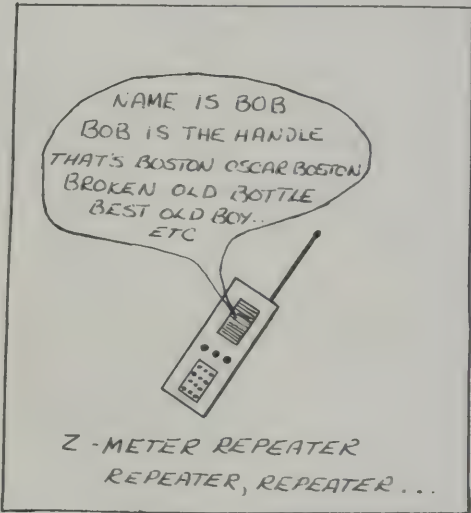 NAME IS BOB
BOB IS THE HANDLE
THAT'S BOSTON OSCAR BOSTON
BROKEN OLD BOTTLE
BEST OLD BOY..
ETC
2-METER REPEATER
REPEATER, REPEATER...